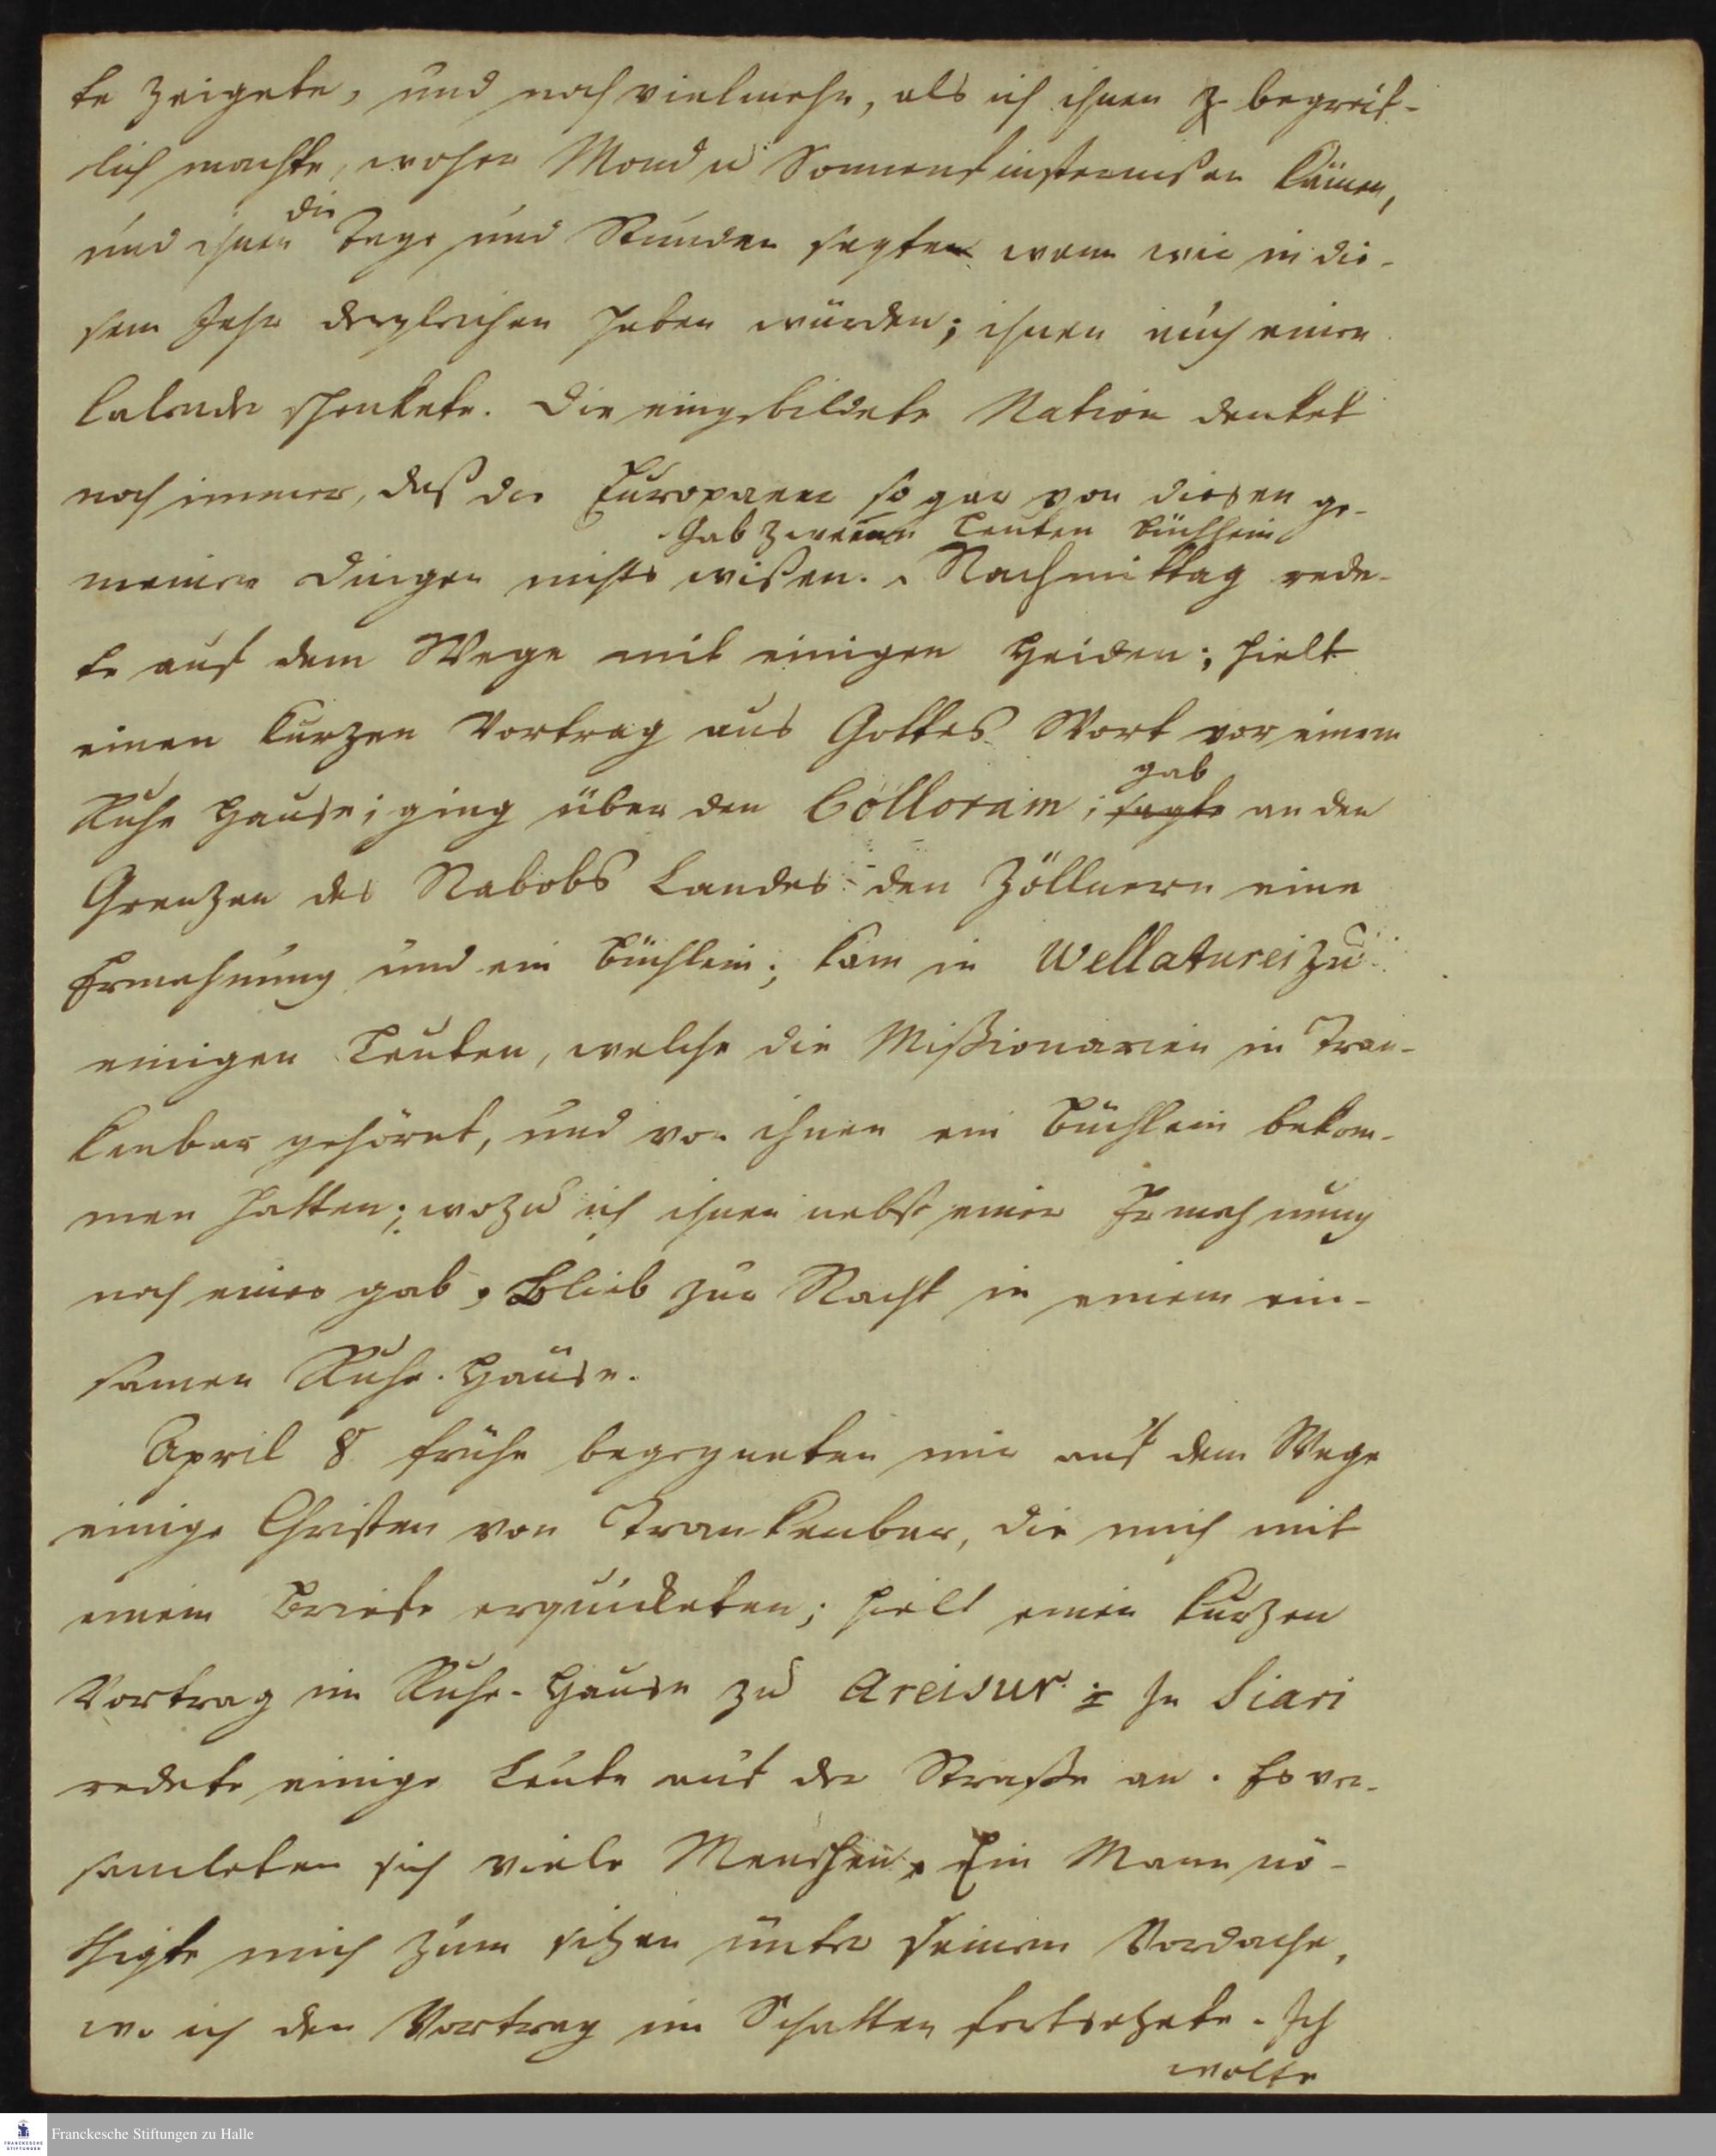 te zeigete, und noch vielmehr, als ich ihnen begreif-
lich machte, woher Mond u Sonnenfinsternißen kämen,
die
und ihnen Tage und Stunden sagte wenn wir in die-
sem Jahr dergleichen haben würden; ihnen auch einen
Calender schenkete. Die eingebildete Nation denket
noch immer, daß die Europaeer so gar von diesen ge-
Gab zweien Leuten Büchlein
meinen Dingen nichts wißen. Nachmittag rede-
te auf dem Wege mit einigen Heiden; hielt
einen kurzen Vortrag aus Gottes Wort vor einem
gab
Ruhe Hause; ging über den Colloram; sagte an den
Grenzen des Nabobs Landes den Zöllnern eine
Ermahnung und ein Büchlein; kam in Wellaturei zu
einigen Leuten, welche die Mißionarien in Tran-
kenbar gehöret, und von ihnen ein Büchlein bekom-
men hatten; wozu ich ihnen nebst einer Ermahnung
noch eines gab; Blieb zur Nacht in einem ein-
samen Ruhe-Hause.
April 8 frühe begegneten mir auf dem Wege
einige Christen von Trankenbar, die mich mit
einem Briefe erquicketen; hielt einen kurzen
Vortrag im Ruhe-Hause zu Areisur. In Siari
redete einige Leute auf der Straße an. Es ver-
samleten sich viele Menschen. Ein Mann nö-
thigte mich zum sitzen unter seinem Vordache,
wo ich den Vortrag im Schatten fortsetzete. Ich
wolte
FRANCKESCHE STIFTUNGEN
Franckesche Stiftungen zu Halle